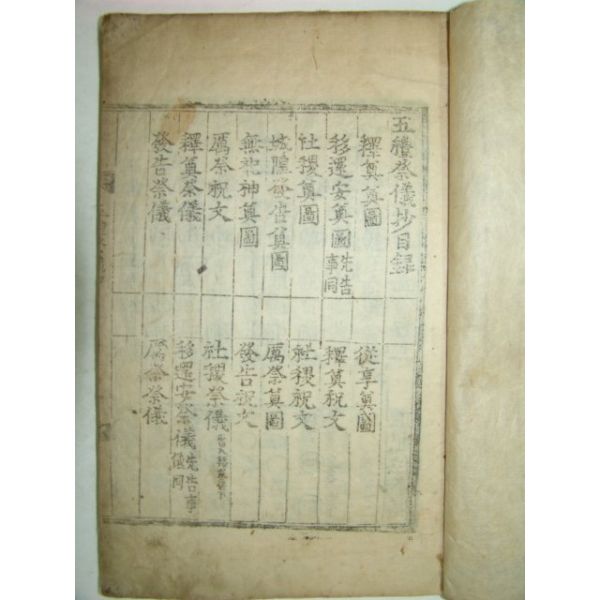 五禮祭儀抄目錄
釋奠奠圖
從享奠圖
移還安奠圖 先告事同
釋奠祝文
社稷奠圖
社稷祝文
城隍發告奠圖
厲祭奠圖
無祀神奠圖
發告祝文
厲祭祝文
社稷祭儀
釋奠祭儀
移還安祭儀 先告事儀同
發告祭儀
厲祭儀